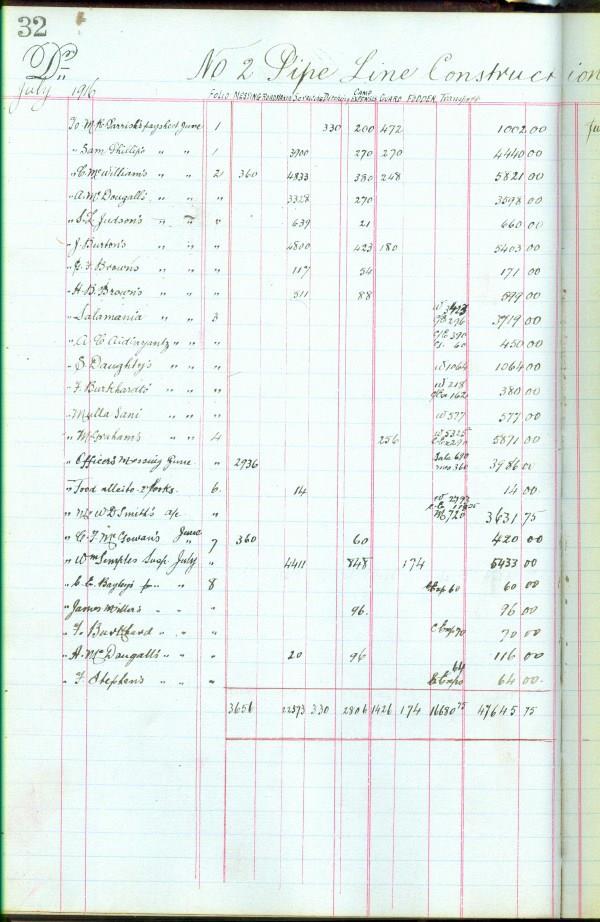 32
Dr
No 2 Pipe Line Construction
July 1916
FOLIO MESSING Roadmain Servicing Ditching CAMP EXPENSES GUARD FODDER Transport
To M.R. Parrish's paysheet June 1 330 200 472 1002 00
" Sam Phillip's " " 1 3900 270 270 4440 00
" C. McWilliam's " " 2 360 4833 380 248 5821 00
" A. McDougall's " " " 3328 270 3598 00
" S. L. Judson's " " " 639 21 660 00
" J. Burton's " " " 4800 423 180 5403 00
" J. F. Brown's " " " 117 54 171 00
" H. B. Brown's " " " 511 88 599 00
" Salamania " " 3 3719 00
" A. C. " " " 390 60 450 00
" S. Daughty's " " " W 1064 1064 00
" F. Burkhardt's " " " W 218 162 380 00
" Mulla Sani " " " W 577 577 00
" McGraham's " " 4 256 W 5325 290 5871 00
" Officers Messing June " 2936 690 360 3986 00
" 6 14 14 00
" Mr W D Smith's a/c " 720 3631 75
" C. F. McGowan's June 7 360 60 420 00
" Wm Simples Susp July " 4411 848 174 5433 00
" C. E. Bayley's " " 8 60 60 00
" James Miller's " " " 96 96 00
" F. Burkhard " " " 70 70 00
" A. McDougall's " " " 20 96 116 00
" F. Stephen's " " " 64 64 00
3656 22873 330 2806 1426 174 16680 75 47645 75